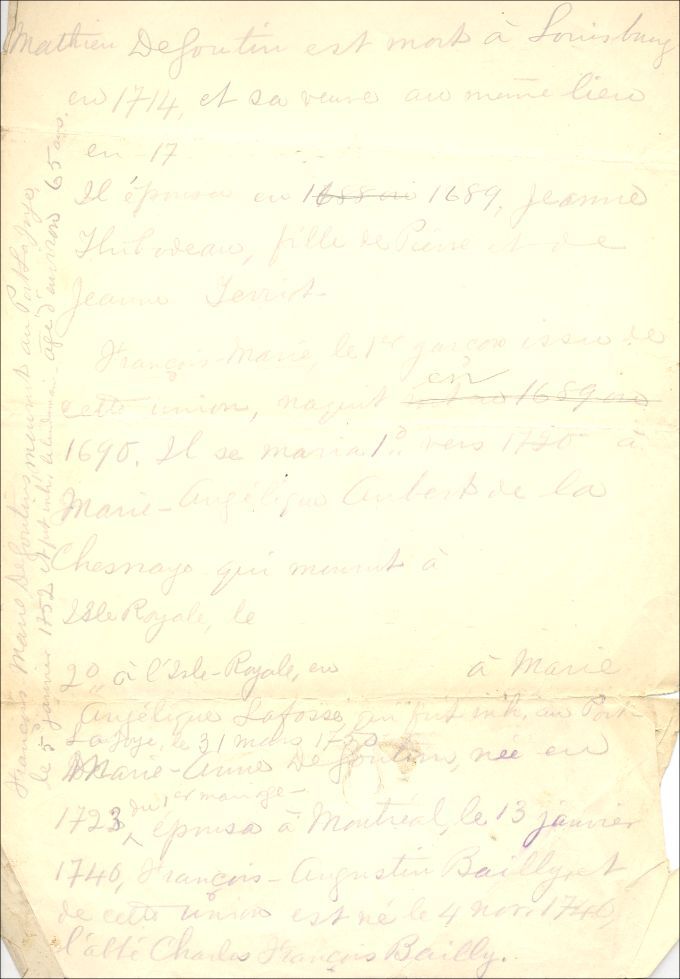 Mathieu DeGoutin est mort à Louisbourg
en 1714, et sa veuve au même lieu
en 17
Il épousa en 1688 ou 1689, Jeanne
Thibodeau, fille de Pierre et de
Jeanne Terriot-
François-Marie, le 1er garçon issu de
en
cette union, naquit entre 1689 ou
1690. Il se maria 1º vers 1720 à
Marie-Angélique Aubert de la
Chesnaye qui mourut à
Isle Royale, le
2º à l'Isle-Royale, en à Marie
Angélique Lafosse, qui fut inh. au Port-
La Joye, le 31 mars 1750
Marie-Anne DeGoutin, née en
du 1er mariage-
1723, épousa à Montréal, le 13 janvier
1740, François-Augustin Bailly, et
de cette union est né le 4 nov. 1740,
l'abbé Charles François Bailly.
François Marie DeGoutins mourut au Port La Joye,
le 5 janvier 1752 et fut inh. le lendemain - âgé d'environ 65 ans.